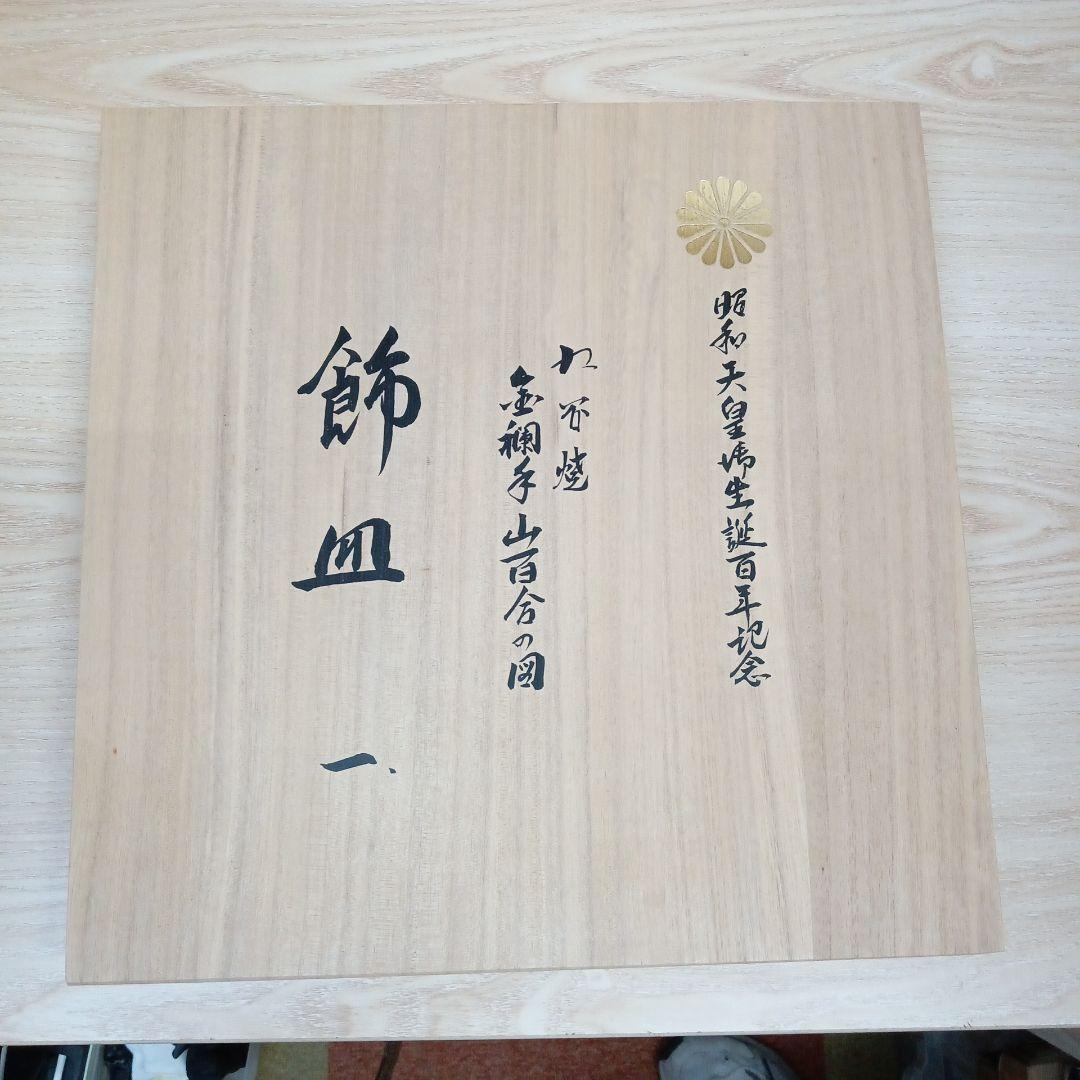 昭和天皇御生誕百年記念
九谷焼
金襴手山百合の図
飾皿
一、